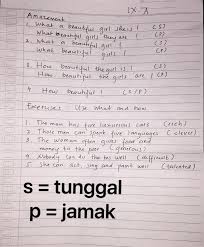 IX A
Amazement
1. What a beautiful girl she is! (S)
What beautiful girls they are! (P)
2. What a beautiful girl! (S)
What beautiful girls! (P)
3. How beautiful the girl is! (S)
How beautiful the girls are! (P)
4. How beautiful! (S/P)
Exercises: Use what and how
1. The man has five luxurious cars (rich)
2. Those men can speak five languages (clever)
3. The woman often gives food and
money to the poor (generous)
4. Nobody can do the tes well (difficult)
5. She can act, sing and paint well (talented)
s = tunggal
p = jamak